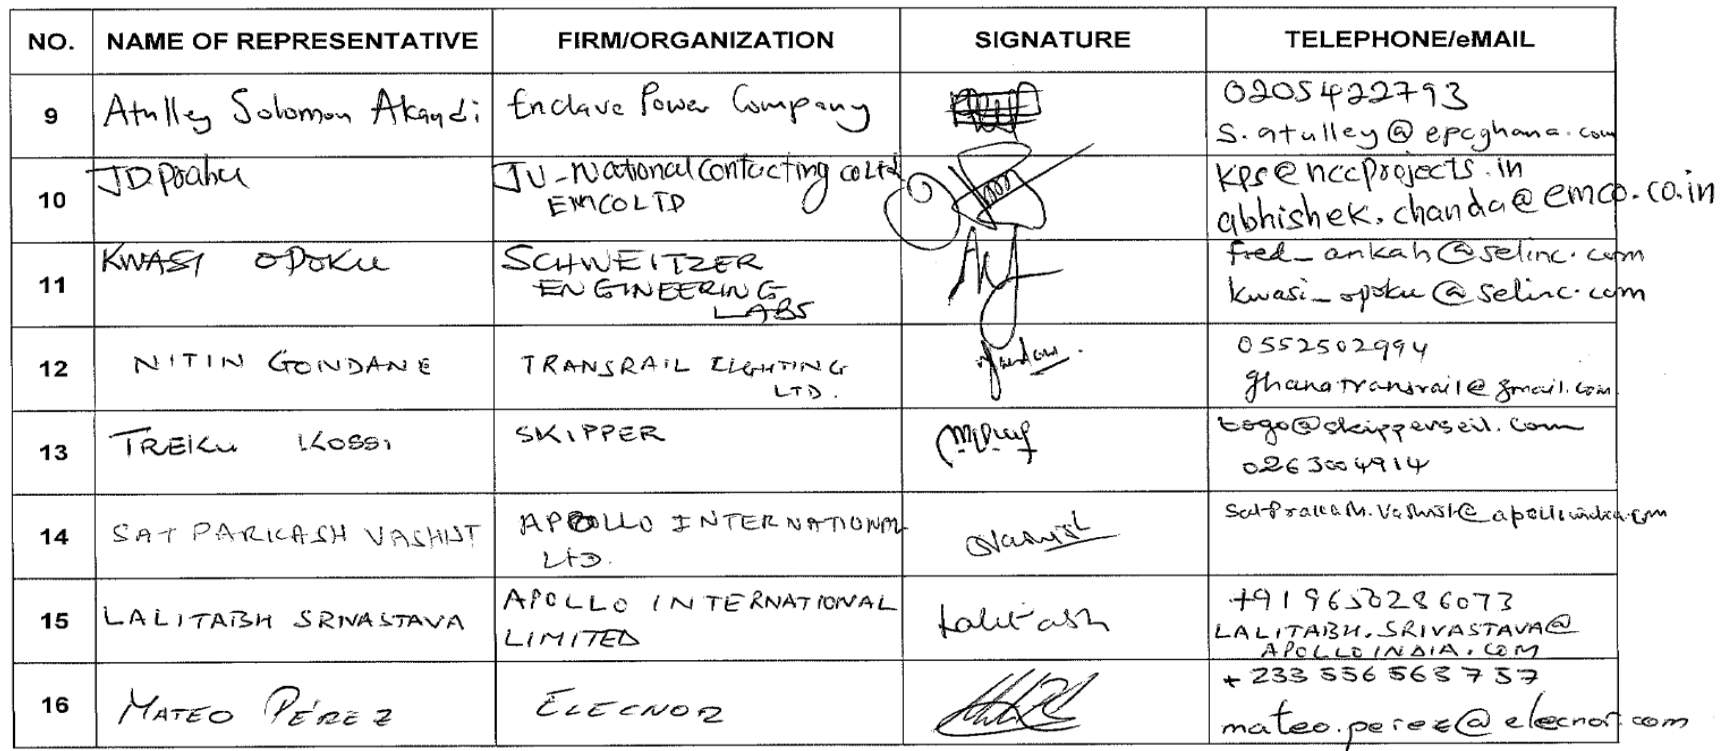 NO. NAME OF REPRESENTATIVE FIRM/ORGANIZATION SIGNATURE TELEPHONE/eMAIL
9 Atulley Solomon Akaydi Enclave Power Company 0205422793
s.atulley@epcghana.com
10 JD Prabhu JV-National Contacting co Ltd kps@nccprojects.in
EMCO LTD abhishek.chanda@emco.co.in
11 KWASI OPOKU SCHWEITZER fred_ankah@selinc.com
ENGINEERING kwasi_opoku@selinc.com
LABS
12 NITIN GONDANE TRANSRAIL LIGHTING 0552502994
LTD. ghanatransrail@gmail.com
13 TREIKU KOSSI SKIPPER togo@skipperseil.com
0263004914
14 SAT PARKASH VASHIST APOLLO INTERNATIONAL satprakash.vashist@apolloindia.com
Ltd.
15 LALITABH SRIVASTAVA APOLLO INTERNATIONAL Lalitabh +919650286073
LIMITED LALITABH.SRIVASTAVA@
APOLLOINDIA.COM
16 MATEO PÉREZ ELECNOR +233 556 563 757
mateo.perez@elecnor.com